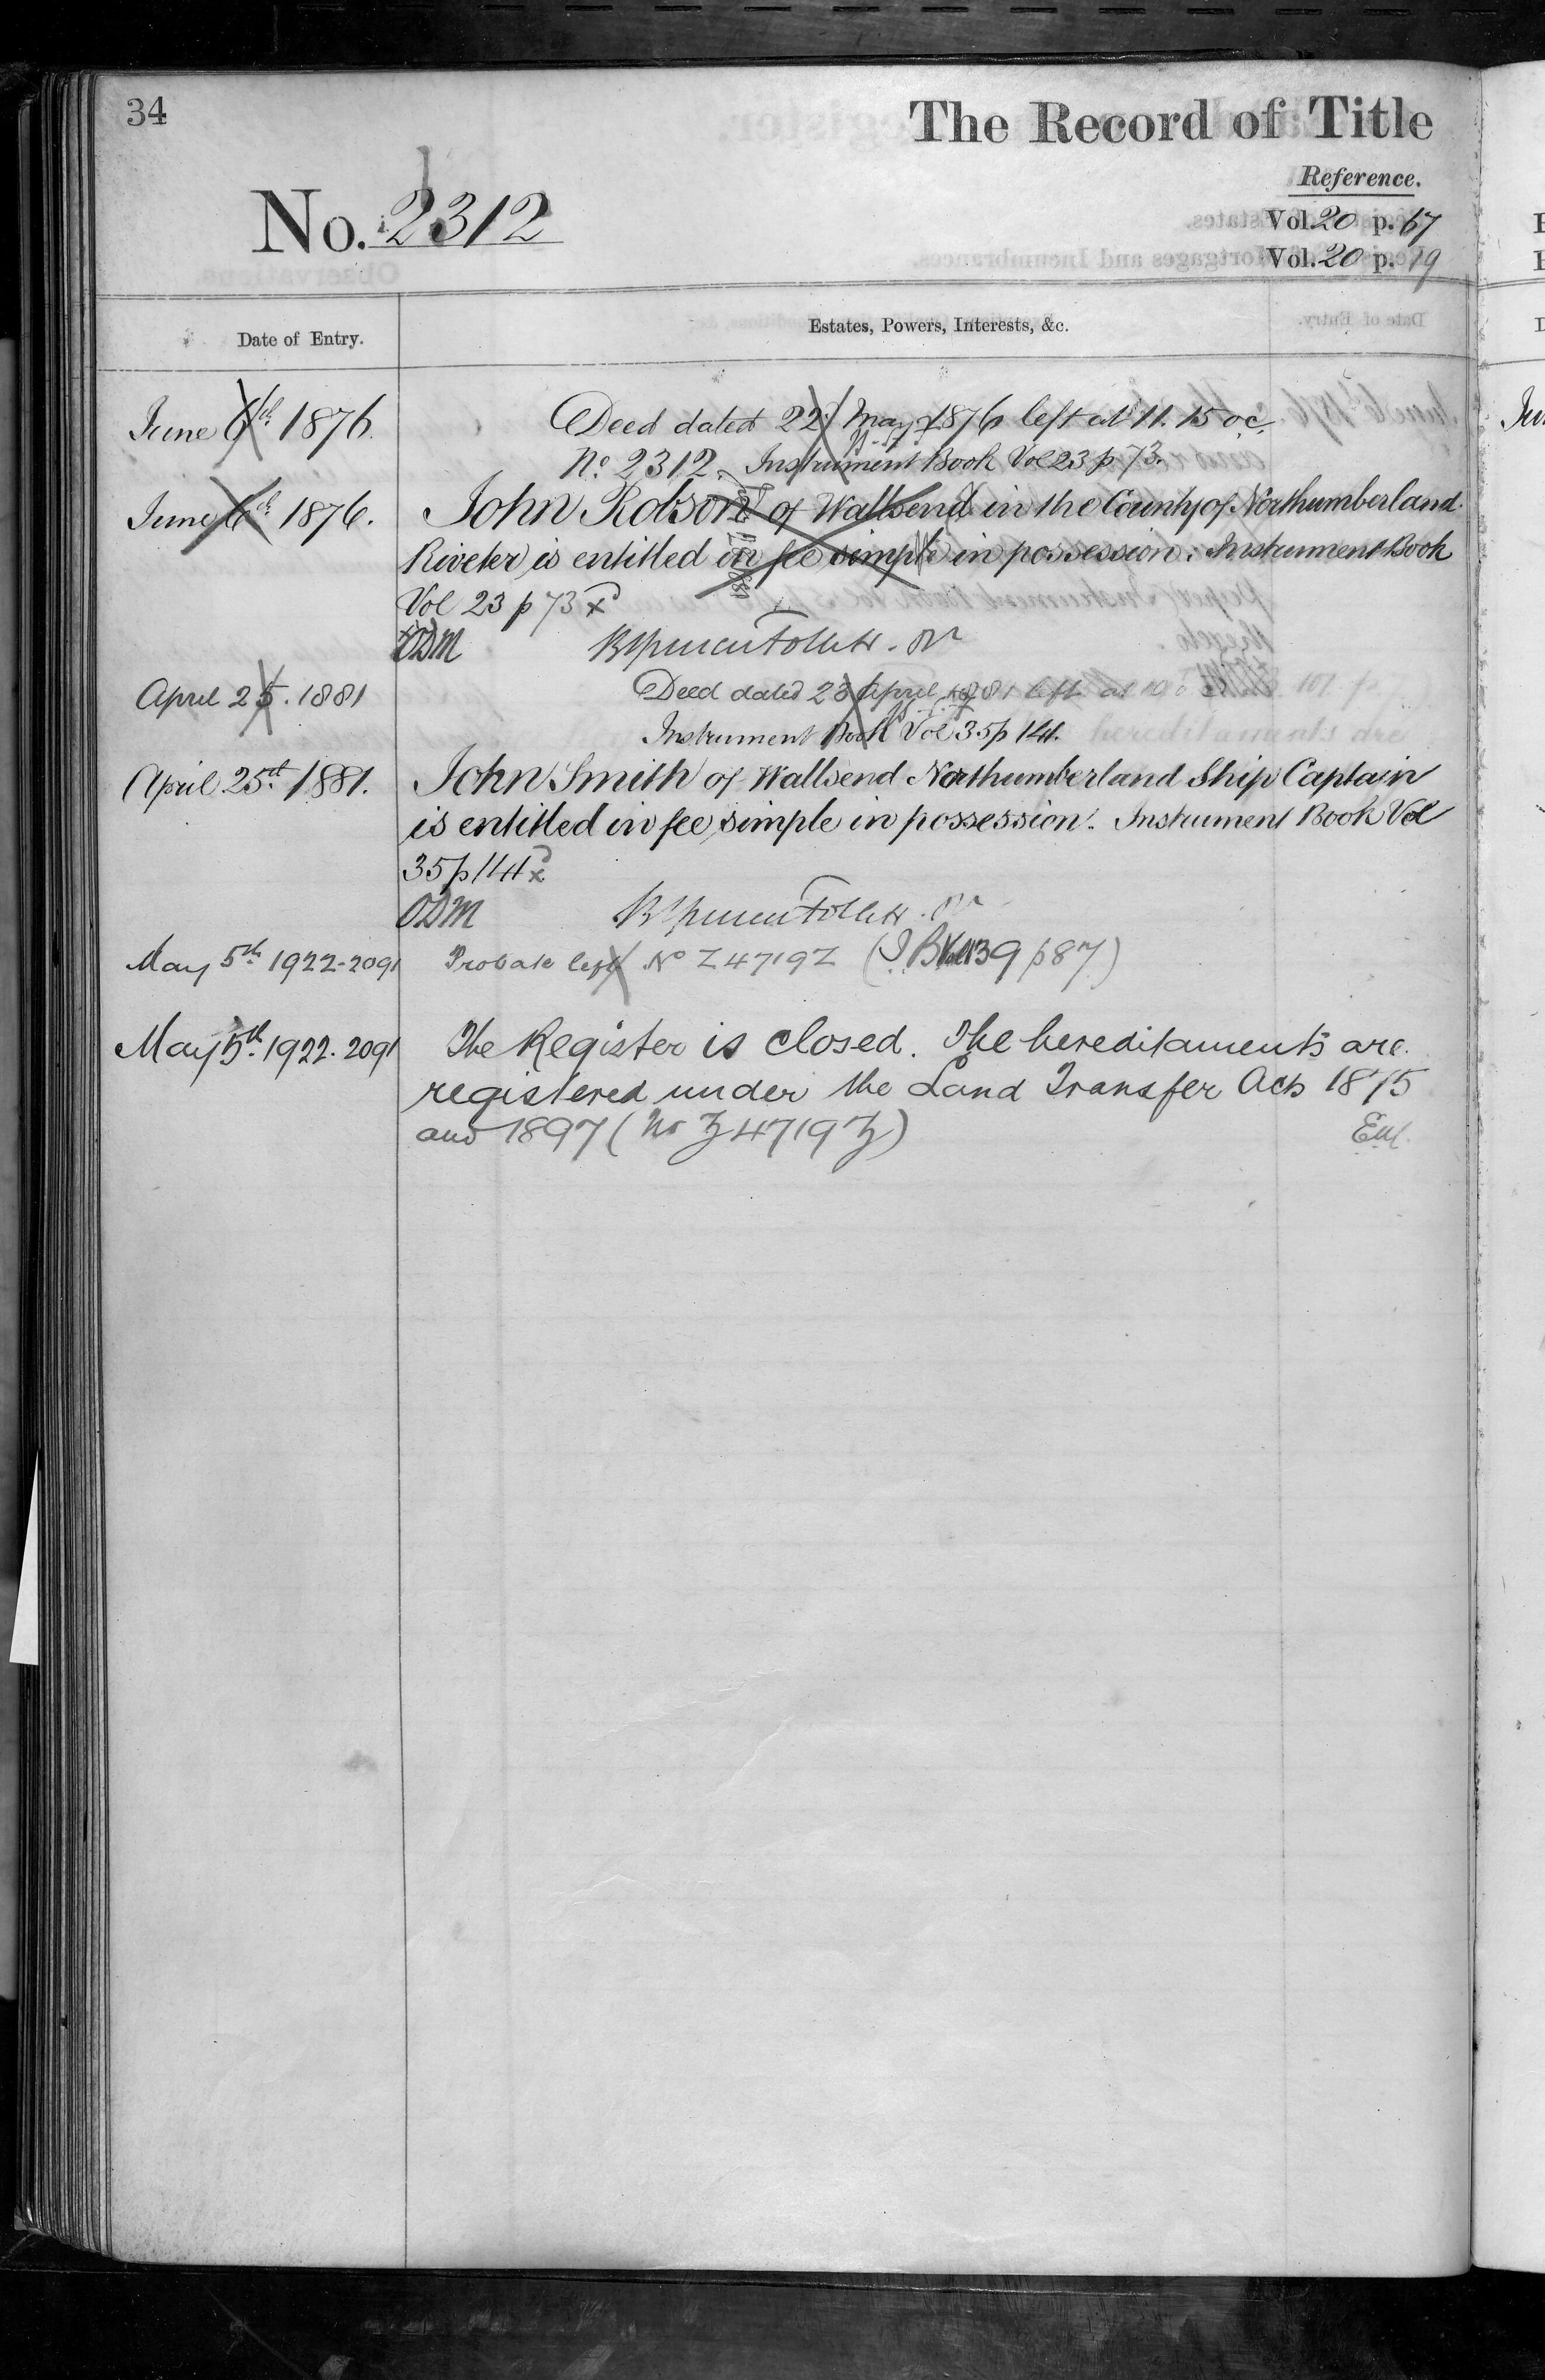 34
The Record of Title
Reference.
No. 2312
Vol. 20 p. 67
Vol. 20 p. 19
Date of Entry.
Estates, Powers, Interests, &c.
June 6th 1876.
Deed dated 22 May 1876 left at 11.15 oc.
No. 2312. Instrument Book Vol 23 p 73.
June 6th 1876.
John Robson of Wallsend in the County of Northumberland
Riveter is entitled in fee simple in possession. Instrument Book
Vol 23 p 73 x
ODM
April 25. 1881
Deed dated 23 April 1881 left at 10
Instrument Book Vol 35 p 141.
April 25th 1881.
John Smith of Wallsend Northumberland Ship Captain
is entitled in fee simple in possession. Instrument Book Vol
35 p 141 x
ODM
May 5th 1922-2091
Probate left No Z4719Z (I.B. Vol 139 p 87)
May 5th 1922. 2091
The Register is closed. The hereditaments are
registered under the Land Transfer Acts 1875
and 1897 (No Z4719Z)